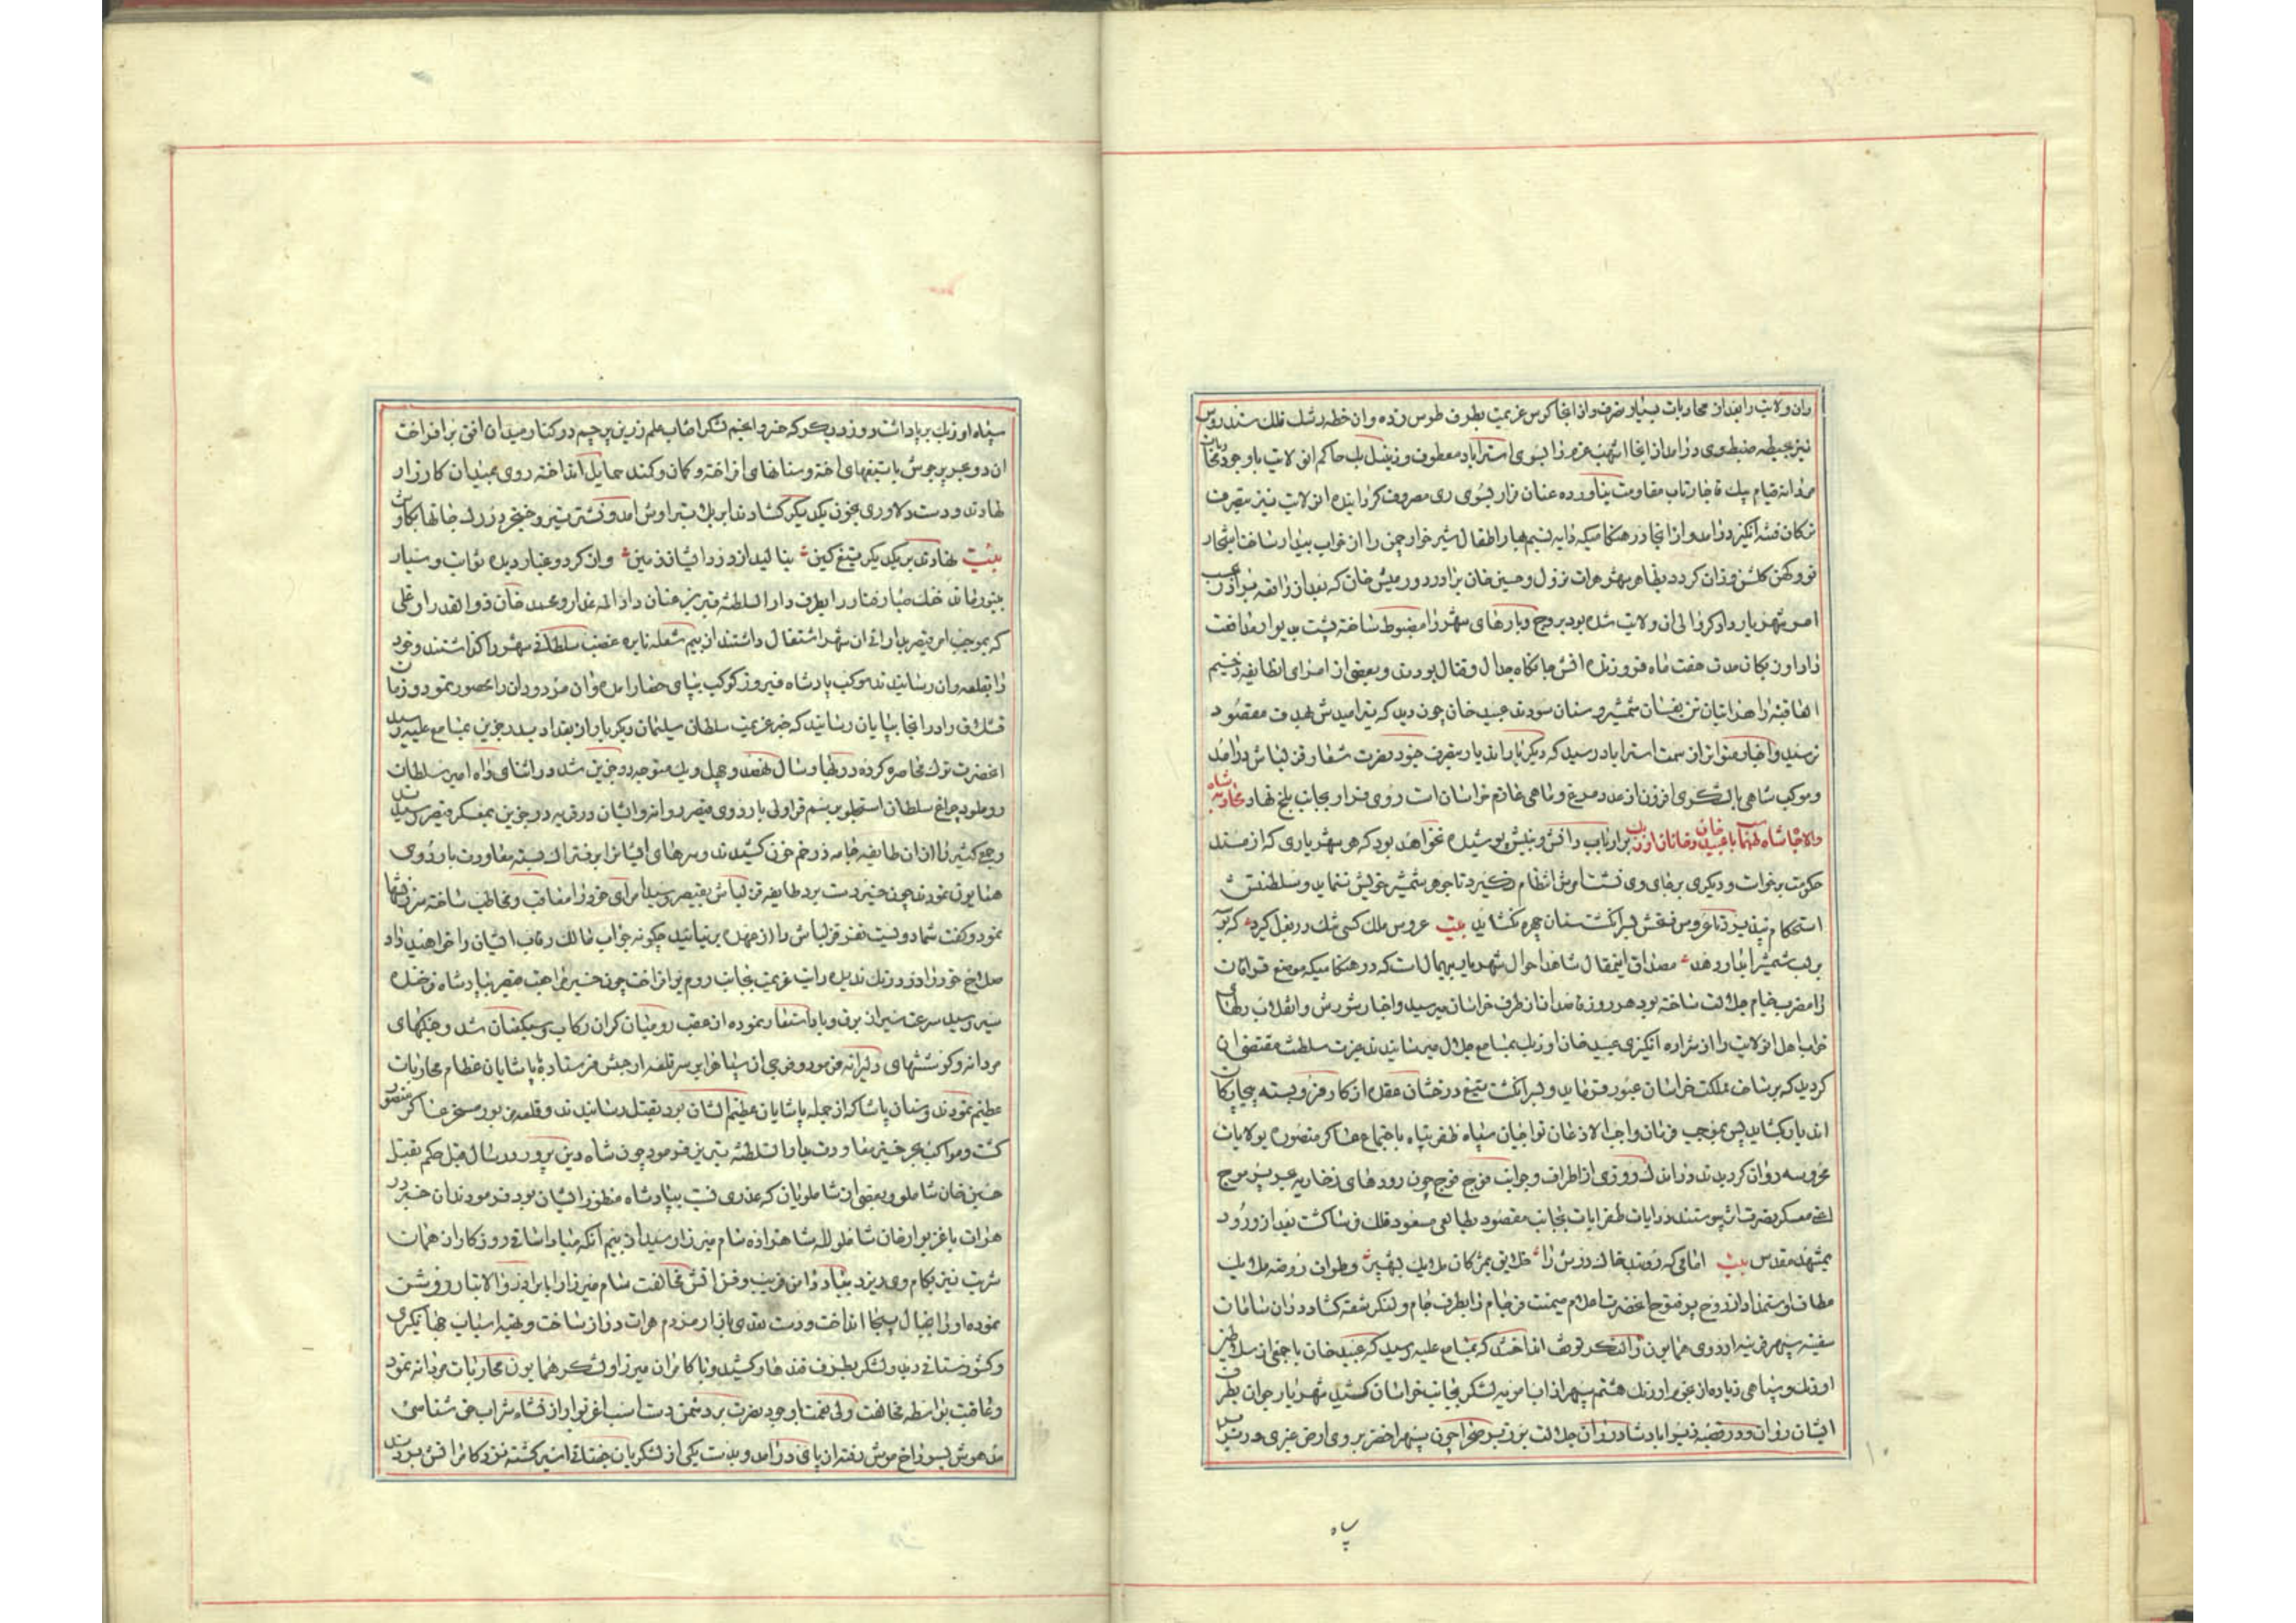 وان ولایت را بعد از محاربات بسیار متصرف و از انجا کوس عزیمت بطرف طوس زده و ان خطه رشک فلک سندروس
نیز بحیطه ضبط وی درامد از انجا اشهب عزم را بسوی استراباد معطوف و زینل بک حاکم ان ولایت با وجود
مردانه قیام بیک قاجار تاب مقاومت نیاورده عنان فرار بسوی ری مصروف کردانیده ان ولایت نیز بتصرف
ترکان فتنه انکیز درامد و از انجا در هنکامیکه دایه نسیم بهار اطفال شیر خوار چمن را از خواب بیدار ساخت اشجار
نو و کهن کلشن وزان کردد بظاهر شهر هرات نزول و حسین خان برادر دورمیش خان که بعد از واقعه برادر
امر شهریار دادکر والی ان ولایت شده بود بروج و بارهای شهر را مضبوط ساخته پشت بدیوار مدافعت
داد اوزبکان مدت هفت ماه فروزنده اتش جانکاه جدال و قتال بودند و بعضی از امرای انطایفه زخیم
العاقبة را هراتیان تن بفسان شمشیر و سنان سودند عبید خان چون دید که تیر امیدش بهدف مقصود
نرسید و اخبار متواتر از سمت استراباد رسید که دیکر بار اندیار بتصرف جنود نصرت شعار قزلباش درامد
و موکب شاهی با لشکری افزون از عدد مرغ و ماهی عازم خراسان است روی فرار بجانب بلخ نهاد محاربه شاه
والا جاه شاه طهماسب با عبید خان و خانان اوزبک بر ارباب دانش و بینش پوشیده نخواهد بود که هر شهریاری که از مسند
حکومت برخواست و دیکری بر جای وی نشست امرش انتظام نکیرد تا جوهر شمشیر خویش ننماید و سلطنتش
استحکام نپذیرد تا عروس فتحش بسر انکشت سنان چهره نکشاید بیت عروس ملک کسی تنک در بغل کیرد که بوسه
بر لب شمشیر ابدار دهد مصداق اینمقال شاهد احوال شهریار بیهمال است که در هنکامیکه موضع
را مضرب خیام جلالت ساخته بود هر روزه قاصدان از طرف خراسان میرسید و اخبار شورش و انقلاب
خراب اهل انولایت را از شراره انکیزی عبید خان اوزبک بمسامع جلال میرسانیدند غیرت سلطنت مقتضی ان
کردید که بر ساحت مملکت خراسان عبور فرماید و بسر انکشت تیغ درخشان عقده از کار فرو بسته بیچارکان
اندیار بکشاید پس بموجب فرمان واجب الاذعان تواچیان سپاه ظفر پناه باجتماع عساکر منصوره بولایات
محروسه روان کردیدند در اندک روزی از اطراف و جوانب فوج فوج چون رودهای زخار به بحر پر موج
اعنی معسکر نصرت اثر پیوستند و رایات ظفر ایات بجانب مقصود بطالعی مسعود فلک فرسا کشت بعد از ورود
بمشهد مقدس بیت امامی که روبند خاک درش را خلایق بمژکان ملایک بشهپر و طواف روضه ملایک
مطاف و استمداد از روح پر فتوح انحضرت اعلام میمنت فرجام را بطرف جام و لنکر شقه کشاد و در ان ساحات
سفینه سپهر قرینه اردوی همایون را لنکر توقف انداختند که بمسامع علیه رسید که عبید خان با جمعی از سلاطین
اوزبک و سپاهی زیاده از نجوم اورنک هشتم سپهر از اب امویه لشکر بجانب خراسان کشید شهریار جوان بطرف
ایشان روان و در قصبه
سپاه
سپاه اوزبک بر پا داشت روز دیکر که خسرو انجم لشکر افتاب علم زرین پرچم در کنار میدان افق بر افراخت
ان دو بحر پر جوش با تیغهای اخته و سنانهای افراخته و کمان و کمند حمایل انداخته روی بمیدان کارزار
نهادند و دست دلاوری بخون یکدیکر کشادند ابر بلک بتراوش امد و نشتر تیر و خنجر در رک جانها بکاوش
بیت نهادند بر یکدیکر تیغ کین بنالید از درد ایشان زمین و ان کرد و غبار دیده ثوابت و سیار
بنور ماند خنک صبا رفتار را بطرف دار السلطنه تبریز عنان داد المه غدار و محمد خان ذو القدر اوغلی
که بموجب امر قیصر بدارائی ان شهر اشتغال داشتند از بیم شعله نایره غضب سلطانی شهر را کذاشتند و خود
را بقلعه وان رسانیدند موکب پادشاه فیروز کوکب بپای حصار امده وان مردودان را محصور نمود و زمستان
قشلاق را در انجا بپایان رسانید که خبر عزیمت سلطان سلیمان دیکر بار از بغداد بدرجزین بمسامع علیه رسید
انحضرت ترک محاصره کرده در نهاوسال نهصد و چهل و یک متوجه درجزین شد در اثنای راه امیر سلطان
روملو و چراغ سلطان استاجلو برسم قراولی باردوی قیصر روانه و ایشان در قریه درجزین بمعسکر قیصر رسیدند
و جمعی کثیر را از ان طایفه جامه در خم خون کشیدند و سرهای ایشانرا بر فتراک بسته معاودت باردوی
همایون نمودند چون خبر دست برد طایفه قزلباش بقیصر رسید امرای خود را معاقب و مخاطب ساخته سرزنشها
نمود و کفت شما دویست نفر قزلباش را از عهده بر نیائید چکونه جواب مالک رقاب ایشان را خواهید داد
صلاح خود را در درنک ندیده رایت عزیمت بجانب روم بر افراخت چون خبر مراجعت قیصر بپادشاه فرخنده
سیر رسید سرعت سیر از برق و باد استفار نموده از عقب رومیان کران رکاب و سبکعنان شد و جنکهای
مردانه و کوششهای دلیرانه فرمود و فوجی از سپاه را بر سر قلعه ارجیش فرستاد با پاشایان عظام محاربات
عظیم نمودند و سنان پاشا که از جمله پاشایان عظیم الشان بود بقتل رسانیدند و قلعه مزبور مسخر عساکر منصور
کشت و مواکب بحر خیز معاودت بدار السلطنه تبریز فرمود چون شاه دین پرور در سال قبل حکم بقتل
حسین خان شاملو و بعضی از شاملویان که عذری نسبت بپادشاه منظور ایشان بود فرمودند ان خبر در
هرات باغزیوار خان شاملو لله شاهزاده سام میرزا رسید از بیم انکه مبادا ساقی روزکار از همان
شربت نیز بکام وی ریزد بنیاد دامن فریب و فن اتش مخالفت سام میرزا را با برادر والا تبار روشن
نموده او را بخیال بیجا انداخت و دست تعدی بازار مردم هرات دراز ساخت و بتهیه اسباب جهانکیری
و کشور ستانی دید و لشکر بطرف قندهار کشید و با کامران میرزا و لشکر همایون محاربات مردانه نمود
و عاقبت بواسطه مخالفت ولی نعمت با وجود نصرت بر دشمن دست اسب اغزیوار از نشاه شراب حق شناسی
مدهوش بسوراخ موش رفته از پای درامد و بدست یکی از لشکریان جغتائی اسیر کشته نزد کامرانش بردند